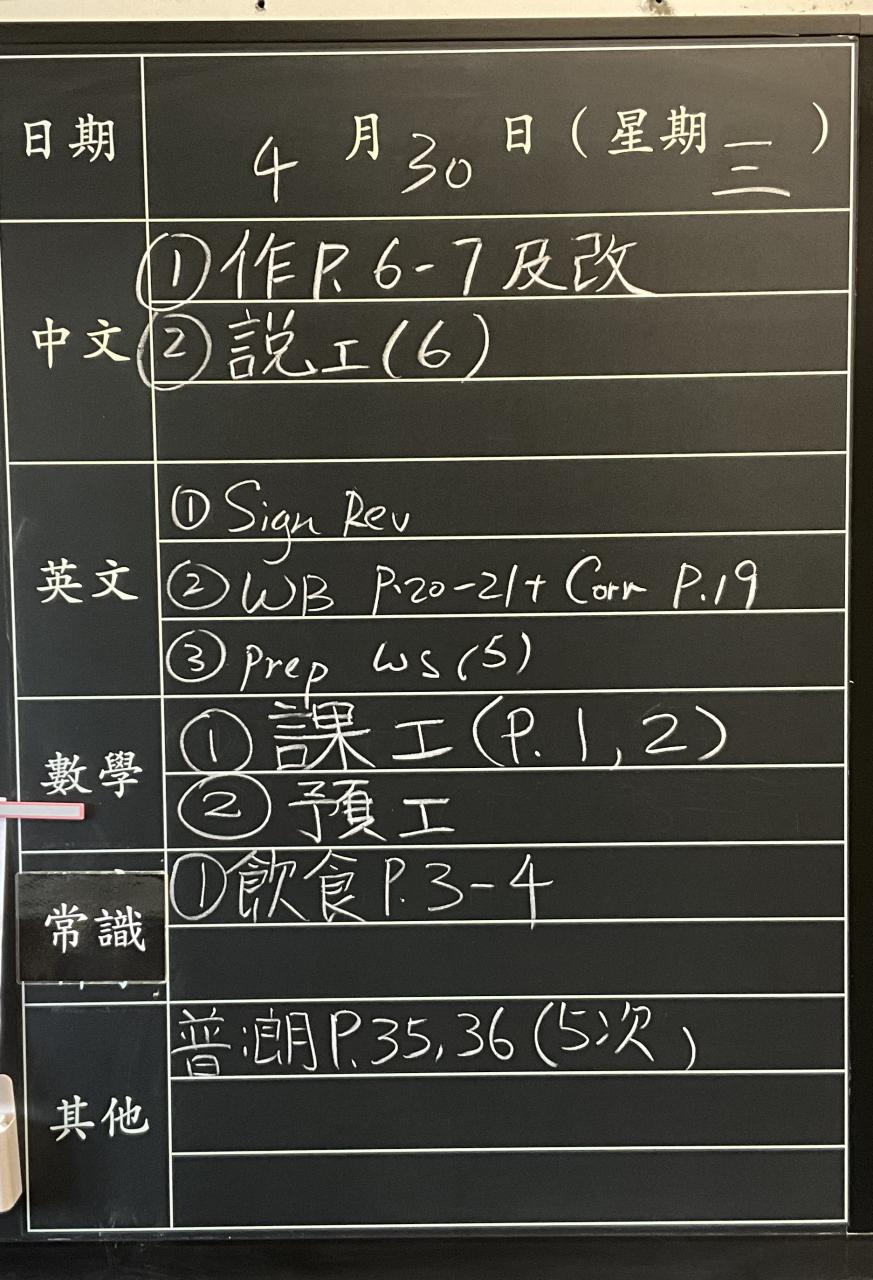 日期 4月30日(星期三)
中文 ①作P.6-7及改
②說工(6)
英文 ①Sign Rev
②WB P.20-21+ Corr P.19
③Prep WS(5)
數學 ①課工(P.1,2)
②預工
常識 ①飲食P.3-4
其他 普朗P.35,36(5次)